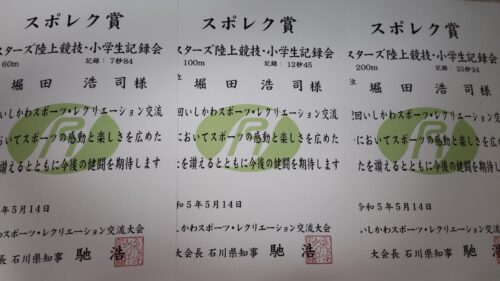 スポレク賞
スターズ陸上競技・小学生記録会
60m 記録：7秒84
堀田 浩司様
回いしかわスポーツ・レクリエーション交流
においてスポーツの感動と楽しさを広めた
を讃えるとともに今後の健闘を期待します
年5月14日
かわスポーツ・レクリエーション交流大会
大会長 石川県知事 馳 浩
スポレク賞
スターズ陸上競技・小学生記録会
100m 記録：12秒45
位 堀田 浩司様
回いしかわスポーツ・レクリエーション交流
においてスポーツの感動と楽しさを広めた
たを讃えるとともに今後の健闘を期待します
和5年5月14日
かわスポーツ・レクリエーション交流大会
大会長 石川県知事 馳 浩
スポレク賞
スターズ陸上競技・小学生記録会
200m 記録：25秒34
位 堀田 浩司様
回いしかわスポーツ・レクリエーション交流
においてスポーツの感動と楽しさを広めた
たを讃えるとともに今後の健闘を期待します
令和5年5月14日
いしかわスポーツ・レクリエーション交流大会
大会長 石川県知事 馳 浩